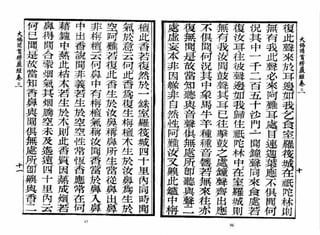 大佛頂首楞嚴經卷三
十
復此聲來於耳邊如我乞食室羅筏城在祇陀林則
無有我此聲必來阿難耳處目連迦葉應不俱聞何
況其中一千二百五十沙門一聞鐘聲同來食處若
復汝耳往彼聲邊如我歸住祇陀林中在室羅城則
無有我汝聞鼓聲其耳已往擊鼓之處鐘聲齊出應
不俱聞何況其中象馬牛羊種種音響若無來往亦
復無聞是故當知聽與音聲俱無處所即聽與聲二
處虛妄本非因緣非自然性阿難汝又嗅此鑪中栴
檀此香若復然於一銖室羅筏城四十里內同時聞
氣於意云何此香為復生栴檀木生於汝鼻為生於
空阿難若復此香生於汝鼻稱鼻所生當從鼻出鼻
非栴檀云何鼻中有栴檀氣稱汝聞香當於鼻入鼻
中出香說聞非義若生於空空性常恆香應常在何
藉鑪中爇此枯木若生於木則此香質因爇成煙若
鼻得聞合蒙煙氣其煙騰空未及遙遠四十里內云
何已聞是故當知香鼻與聞俱無處所即齅與香二
大佛頂首楞嚴經卷三
十一